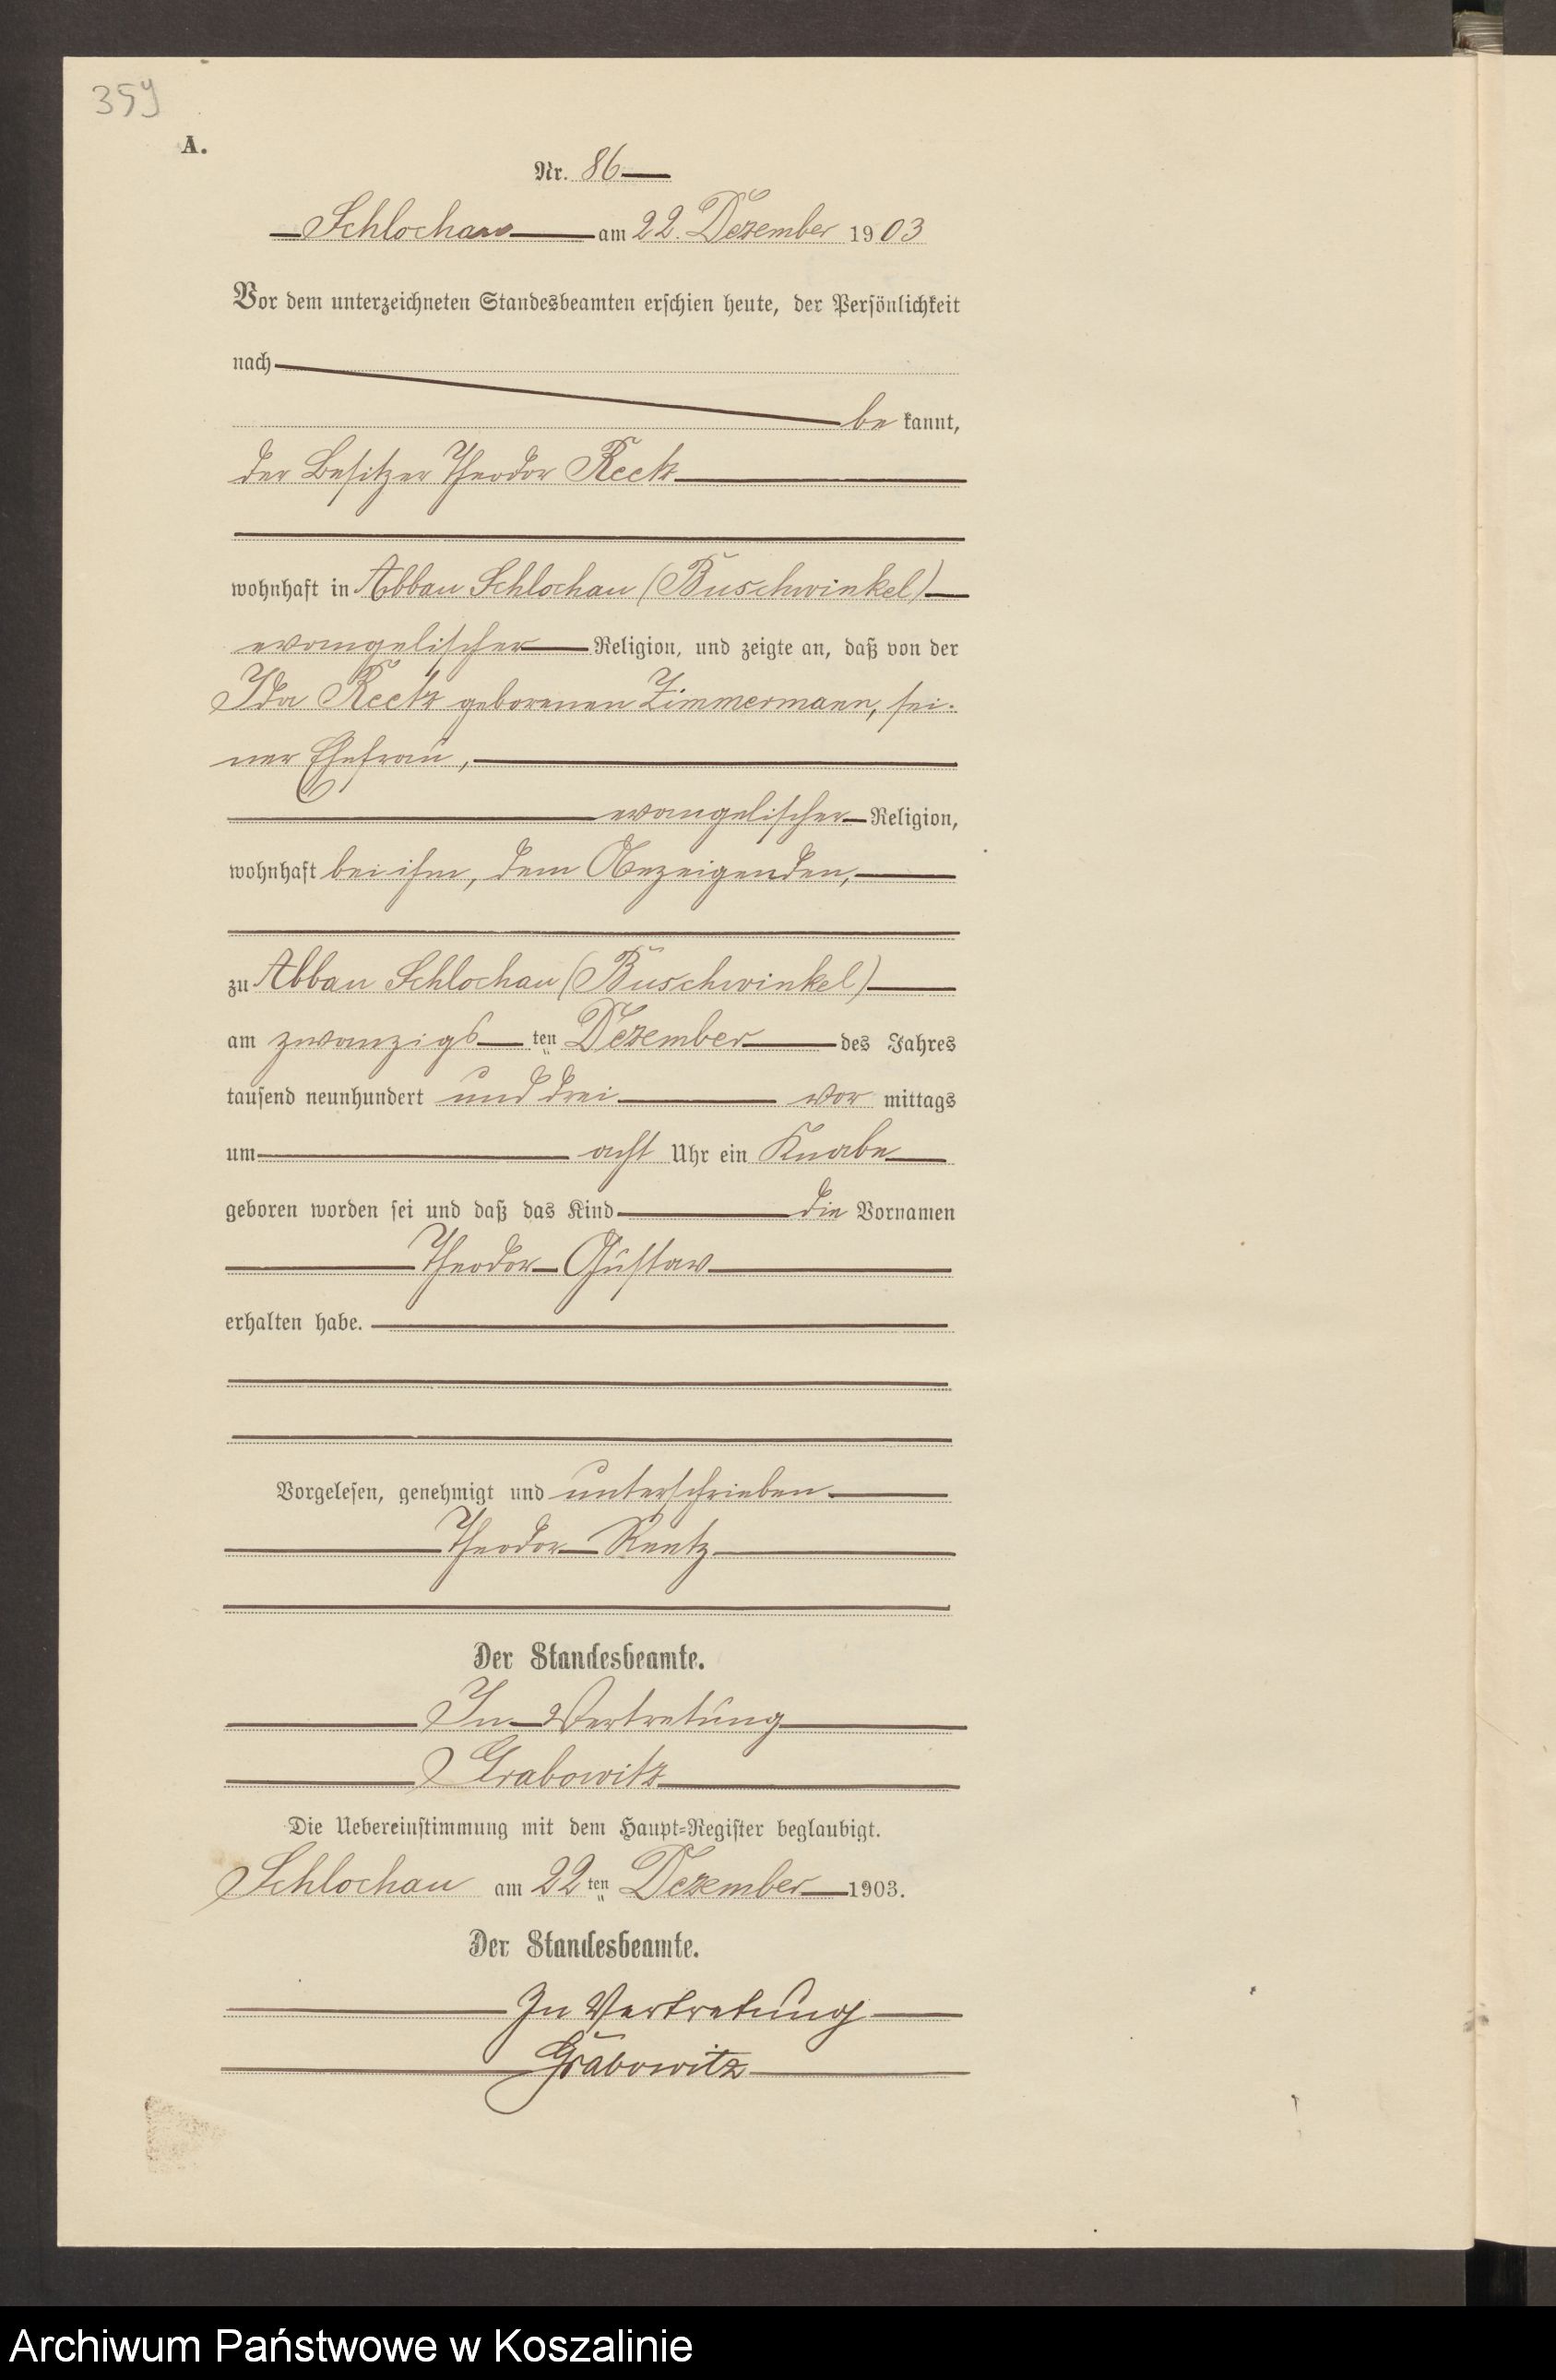 359
A.
Nr. 86
Schlochau am 22. Dezember 1903
Vor dem unterzeichneten Standesbeamten erschien heute, der Persönlichkeit
nach
be kannt,
der Besitzer Theodor Reetz
wohnhaft in Abbau Schlochau (Buschwinkel)
evangelischer Religion, und zeigte an, daß von der
Ida Reetz geborenen Zimmermann, sei-
ner Ehefrau,
evangelischer Religion,
wohnhaft bei ihm, dem Anzeigenden,
zu Abbau Schlochau (Buschwinkel)
am zwanzigs ten Dezember des Jahres
tausend neunhundert und drei vor mittags
um acht Uhr ein Knabe
geboren worden sei und daß das Kind die Vornamen
Theodor Gustav
erhalten habe.
Vorgelesen, genehmigt und unterschrieben
Theodor Reetz
Der Standesbeamte.
In Vertretung
Grabowitz
Die Uebereinstimmung mit dem Haupt-Register beglaubigt.
Schlochau am 22 ten Dezember 1903.
Der Standesbeamte.
In Vertretung
Grabowitz
Archiwum Państwowe w Koszalinie